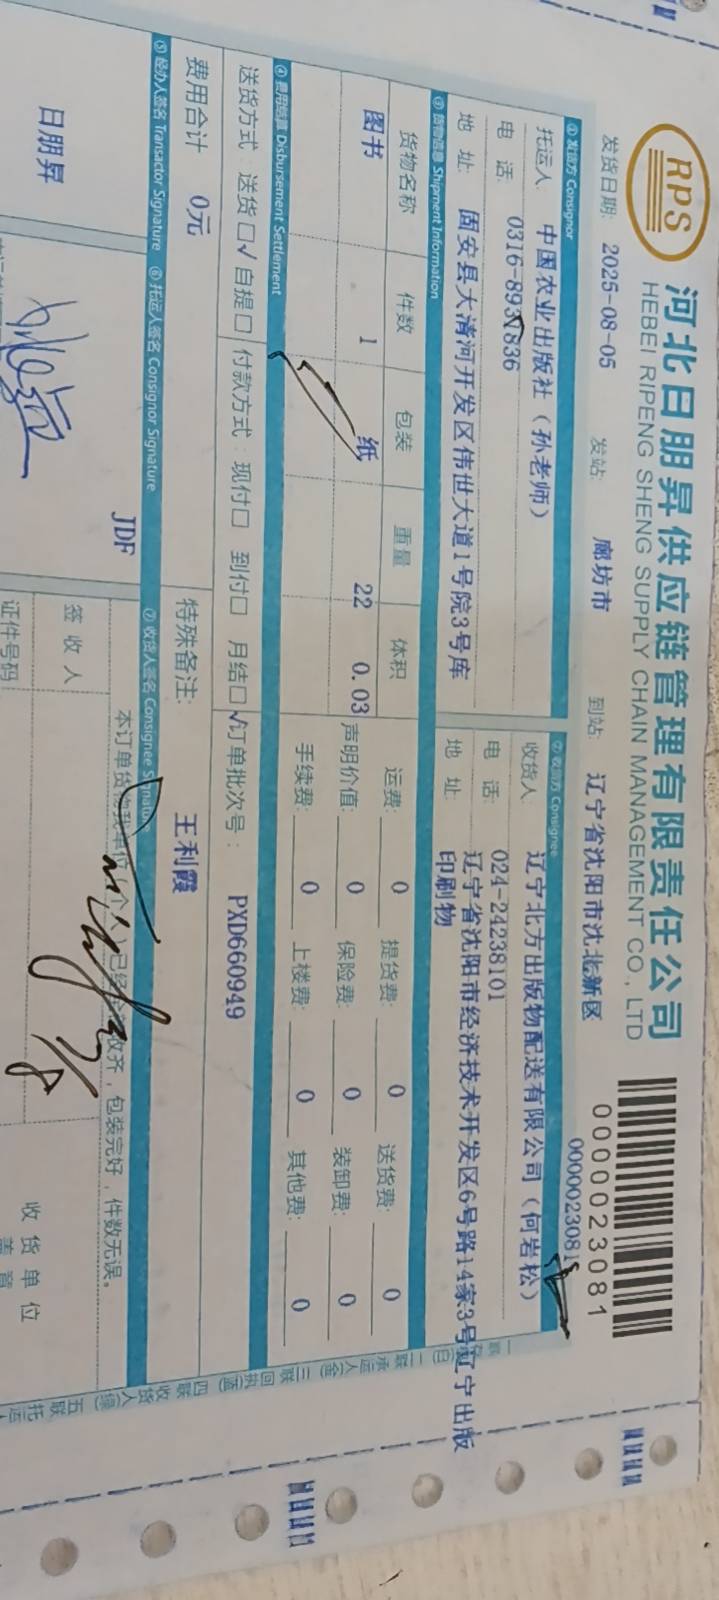 RPS
河北日朋昇供应链管理有限责任公司
HEBEI RIPENG SHENG SUPPLY CHAIN MANAGEMENT CO., LTD
0000023081
发货日期: 2025-08-05 发站: 廊坊市 到站: 辽宁省沈阳市沈北新区
0000023081
① 发货方 Consignor ② 收货方 Consignee
托运人: 中国农业出版社（孙老师） 收货人: 辽宁北方出版物配送有限公司（何岩松）
电 话: 0316-8937836 电 话: 024-24238101
地 址: 固安县大清河开发区伟世大道1号院3号库 地 址: 辽宁省沈阳市经济技术开发区6号路14家3号辽宁出版
印刷物
③ 货物信息 Shipment Information
货物名称 件数 包装 重量 体积 运费: 0 提货费: 0 送货费: 0
图书 1 纸 22 0.03 声明价值: 0 保险费: 0 装卸费: 0
手续费: 0 上楼费: 0 其他费: 0
④ 费用结算 Disbursement Settlement
送货方式: 送货☐√ 自提☐ 付款方式: 现付☐ 到付☐ 月结☐√ 订单批次号: PXD660949
费用合计 0元 特殊备注: 王利霞
⑤ 经办人签名 Transactor Signature ⑥ 托运人签名 Consignor Signature ⑦ 收货人签名 Consignee Signature
JDF
日朋昇
签 收 人
证件号码
收 货 单 位
盖 章